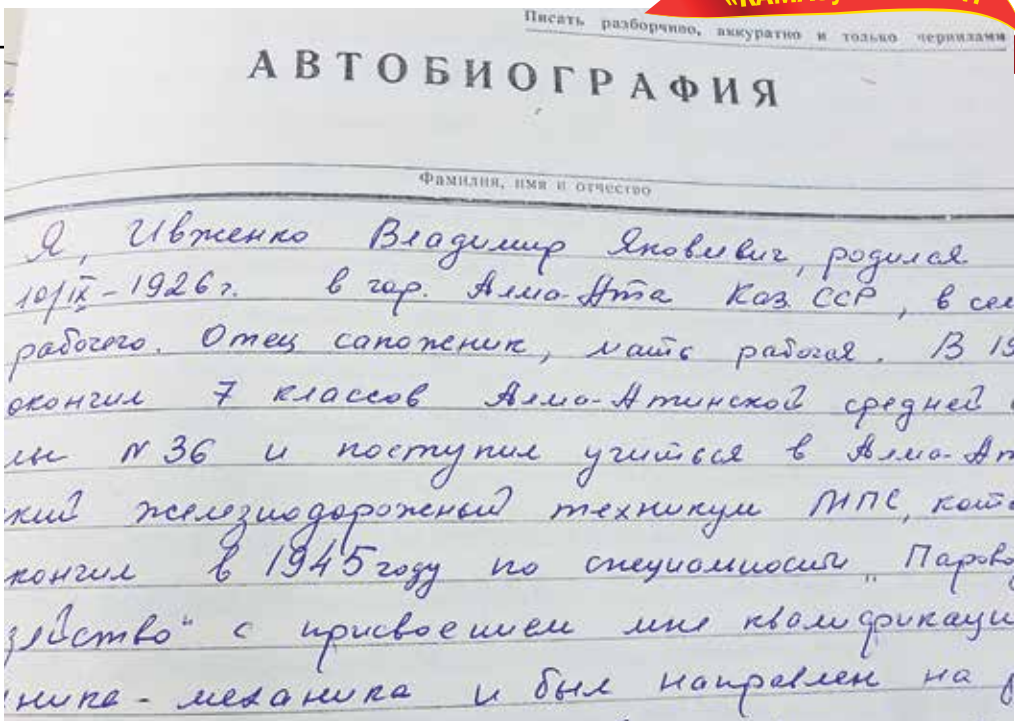 Писать разборчиво, аккуратно и только чернилами
АВТОБИОГРАФИЯ
Фамилия, имя и отчество
Я, Ивженко Владимир Яковлевич, родился
10/IX-1926г. в гор. Алма-Ата Каз. ССР, в сем
рабочего. Отец сапожник, мать рабочая. В 19
окончил 7 классов Алма-Атинской средней
лы N 36 и поступил учиться в Алма-Ат
кий железнодорожный техникум МПС, кото
кончил в 1945 году по специальности „Парово
зяйство" с присвоением мне квалификаци
хника-механика и был направлен на р